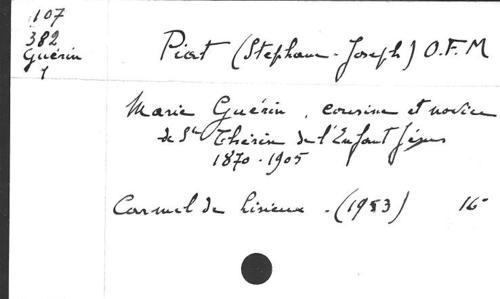 107
382
Guérin
1
Piat (Stephane-Joseph) O.F.M
Marie Guérin, cousine et novice
de Ste Thérèse de l'Enfant Jésus
1870-1905
Carmel de Lisieux - (1953) 16-